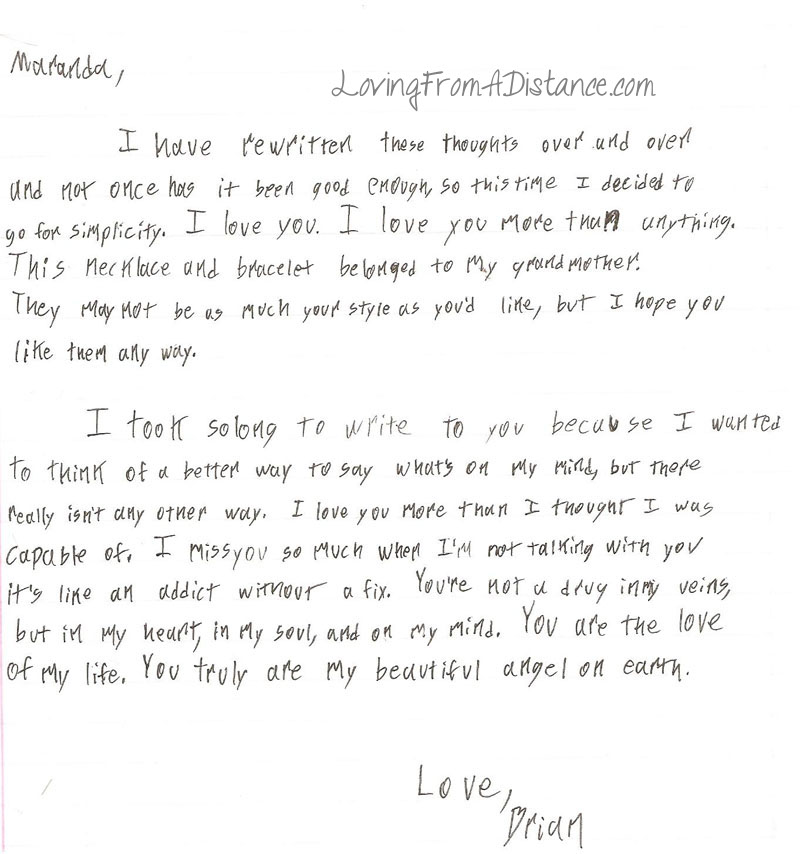 Maranda,
LovingFromADistance.com
I have rewritten these thoughts over and over
and not once has it been good enough, so this time I decided to
go for simplicity. I love you. I love you more than anything.
This necklace and bracelet belonged to my grandmother.
They may not be as much your style as you'd like, but I hope you
like them any way.
I took so long to write to you because I wanted
to think of a better way to say what's on my mind, but there
really isn't any other way. I love you more than I thought I was
capable of. I miss you so much when I'm not talking with you
it's like an addict without a fix. You're not a drug in my veins,
but in my heart, in my soul, and on my mind. You are the love
of my life. You truly are my beautiful angel on earth.
Love,
Brian